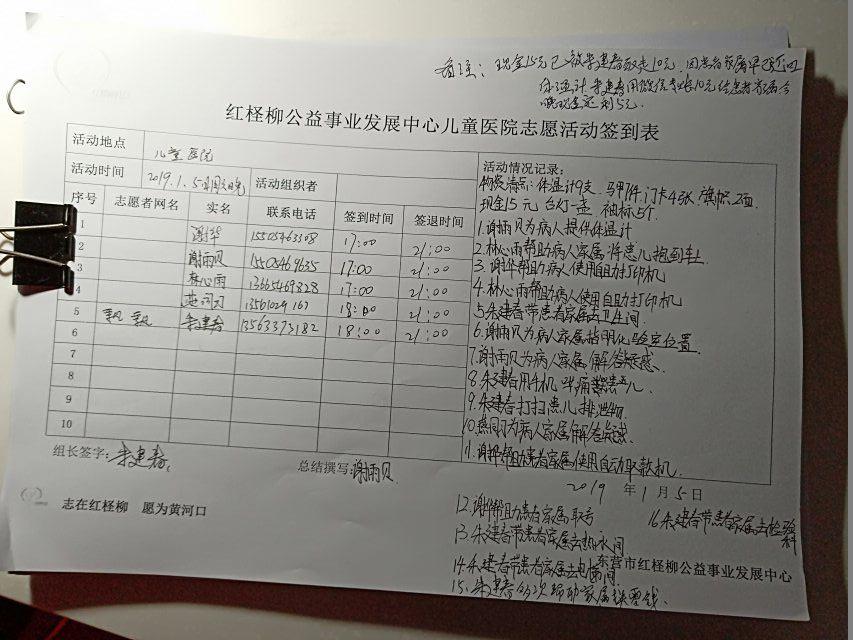 备注：现金15元已被朱建春取走10元，因患者家属早已退回
体温计，朱建春用微信支付10元给患者家属，今
晚现金还剩5元。
红柽柳公益事业发展中心儿童医院志愿活动签到表
活动地点 儿童医院
活动时间 2019.1.5 活动组织者
序号 志愿者网名 实名 联系电话 签到时间 签退时间
1 谢华 15505463308 17:00 21:00
2 谢雨贝 15505469635 17:00 21:00
3 林心雨 13665469828 17:00 21:00
4 13561029167 18:00 21:00
5 朱建春 13563373182 18:00 21:00
6
7
8
9
10
活动情况记录：
物资清点：体温计9支，马甲7件，门卡4张，旗帜2面，
现金15元，台灯一盏，袖标5个。
1.谢雨贝为病人提供体温计
2.林心雨帮助病人家属将患儿抱到车上
3.谢华帮助病人使用自助打印机
4.林心雨帮助病人使用自助打印机
5.朱建春带患者家属去卫生间
6.谢雨贝为病人家属指明化验室位置
7.谢雨贝为病人家属解答疑惑
8.朱建春用手机哄患儿
9.朱建春打扫患儿排泄物
10.为病人家属解答疑惑
11.谢华帮助患者家属使用自动取款机
2019年1月5日
组长签字：朱建春
总结撰写：谢雨贝
志在红柽柳 愿为黄河口
12.谢帮助患者家属取号
13.朱建春带患者家属去热水间
14.朱建春带患者家属去电梯间
15.朱建春多次帮助家属换零钱
16.朱建春带患者家属去检验科
东营市红柽柳公益事业发展中心